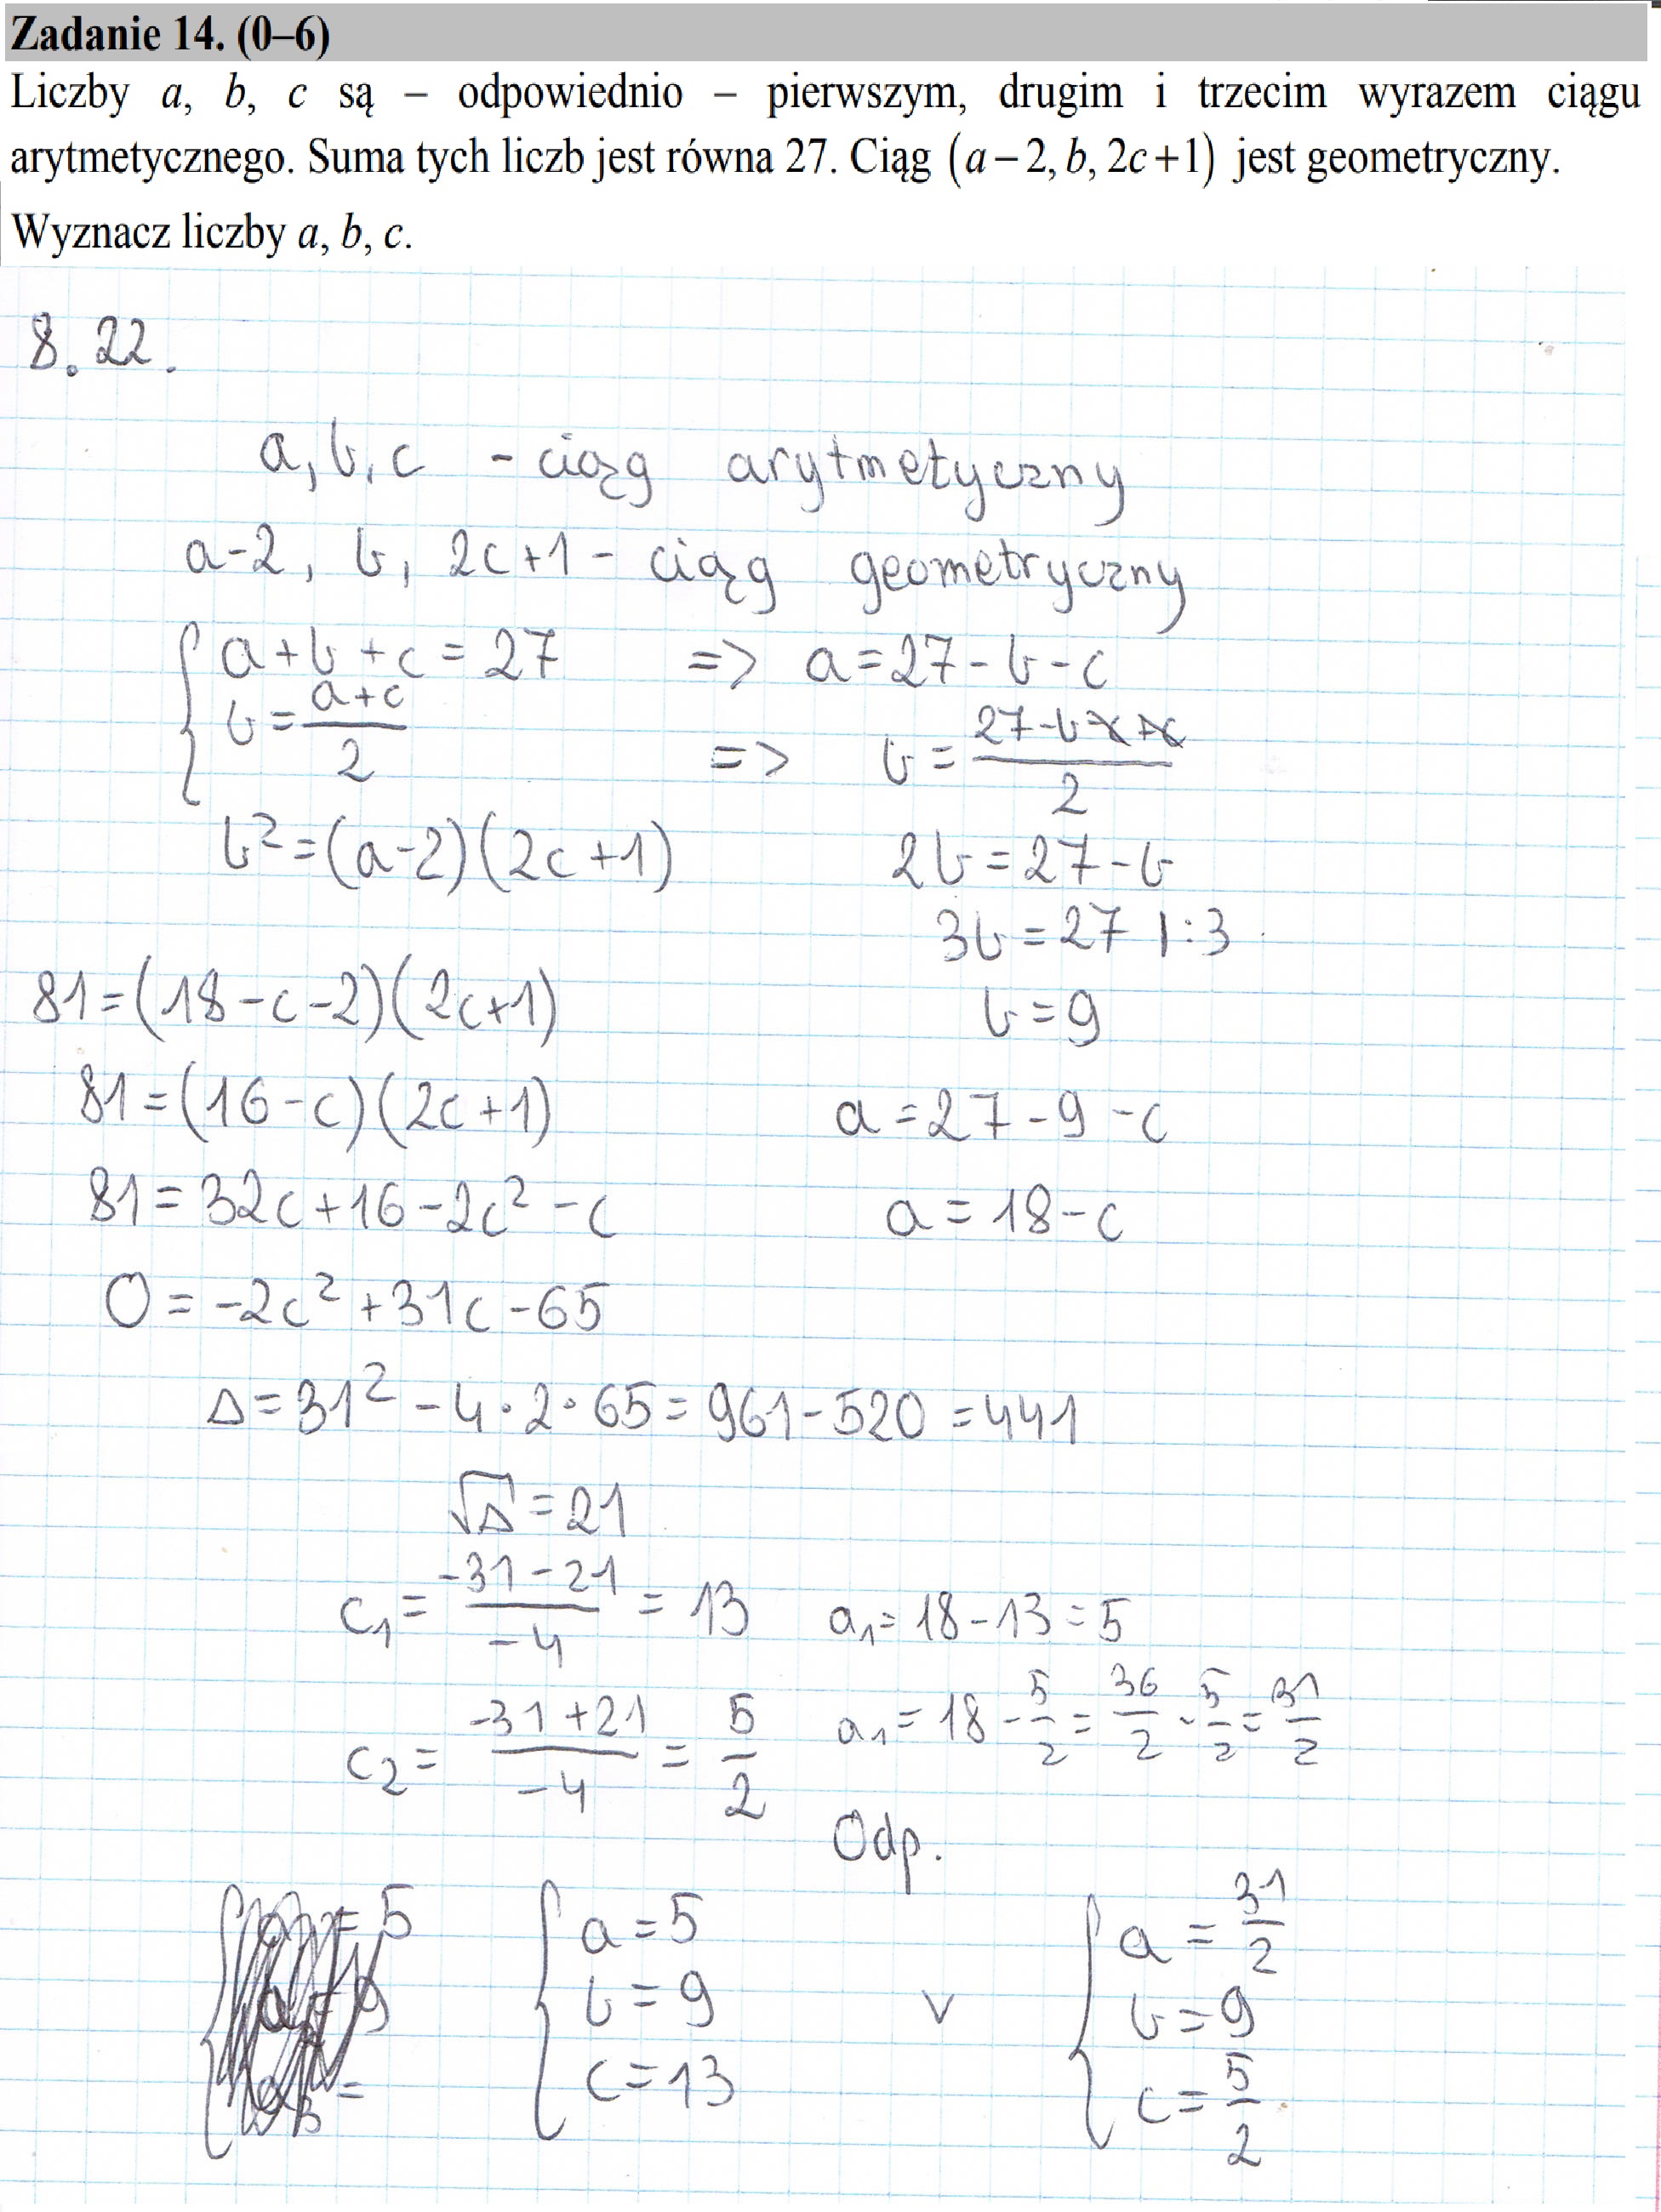 Zadanie 14. (0–6)
Liczby a, b, c są – odpowiednio – pierwszym, drugim i trzecim wyrazem ciągu
arytmetycznego. Suma tych liczb jest równa 27. Ciąg (a – 2, b, 2c + 1) jest geometryczny.
Wyznacz liczby a, b, c.
8.22.
a, b, c - ciąg arytmetyczny
a-2, b, 2c+1 - ciąg geometryczny
a+b+c = 27 => a = 27-b-c
b = (a+c)/2 => b = (27-b-c+c)/2
b² = (a-2)(2c+1) 2b = 27-b
3b = 27 |:3
81 = (18-c-2)(2c+1) b = 9
81 = (16-c)(2c+1) a = 27-9-c
81 = 32c+16-2c²-c a = 18-c
0 = -2c²+31c-65
Δ = 31²-4·2·65 = 961-520 = 441
√Δ = 21
c₁ = (-31-21)/(-4) = 13 a₁ = 18-13 = 5
c₂ = (-31+21)/(-4) = 5/2 a₁ = 18-5/2 = 36/2-5/2 = 31/2
Odp.
a = 5 a = 31/2
b = 9 v b = 9
c = 13 c = 5/2